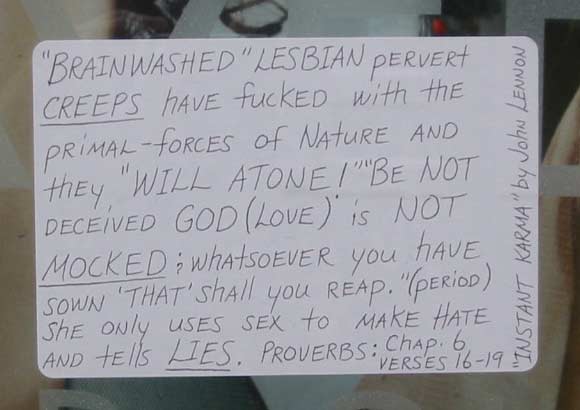 "BRAINWASHED" LESBIAN PERVERT
CREEPS HAVE fucked with the
PRIMAL-FORCES of NATURE AND
they, "WILL ATONE!" "BE NOT
DECEIVED GOD (LOVE) is NOT
MOCKED; WHATSOEVER you HAVE
SOWN 'THAT' SHALL you REAP." (PERIOD)
SHE ONLY USES SEX to MAKE HATE
AND tells LIES. PROVERBS: Chap. 6
VERSES 16-19
"INSTANT KARMA" by JOHN LENNON